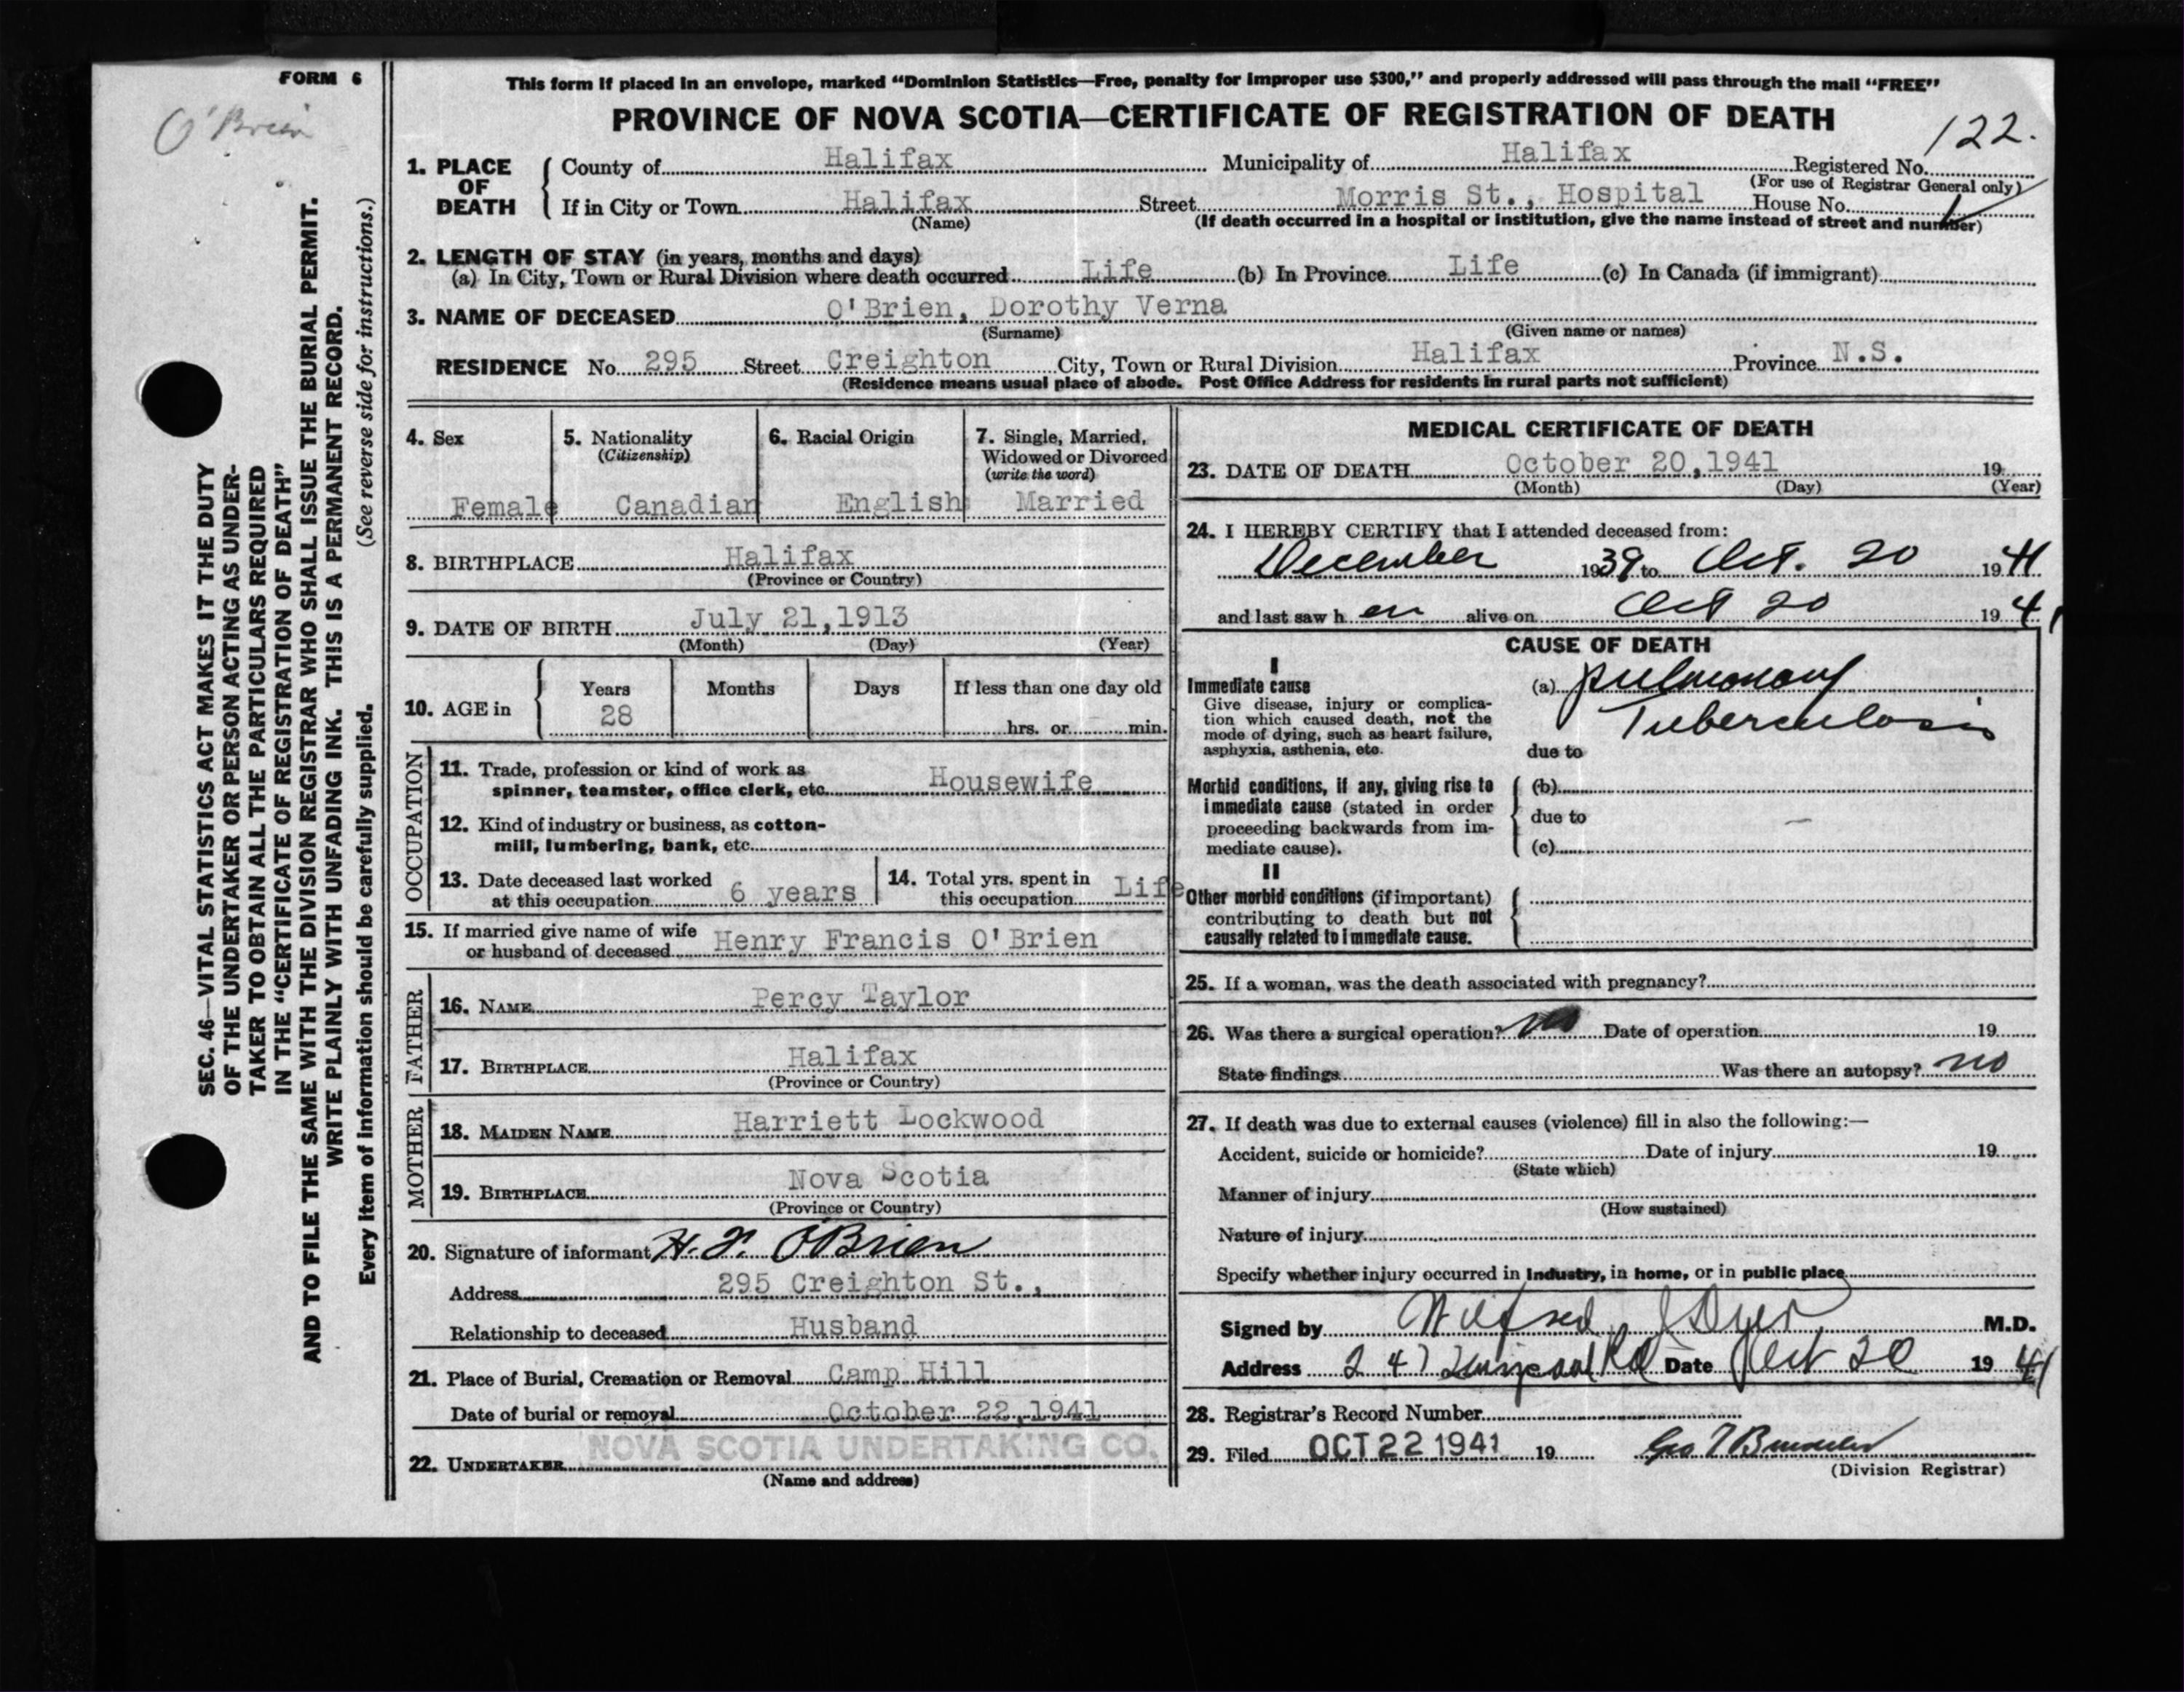 FORM 6
O'Brien
SEC. 46—VITAL STATISTICS ACT MAKES IT THE DUTY
OF THE UNDERTAKER OR PERSON ACTING AS UNDER-
TAKER TO OBTAIN ALL THE PARTICULARS REQUIRED
IN THE "CERTIFICATE OF REGISTRATION OF DEATH"
AND TO FILE THE SAME WITH THE DIVISION REGISTRAR WHO SHALL ISSUE THE BURIAL PERMIT.
WRITE PLAINLY WITH UNFADING INK. THIS IS A PERMANENT RECORD.
Every item of information should be carefully supplied. (See reverse side for instructions.)
This form if placed in an envelope, marked "Dominion Statistics—Free, penalty for improper use $300," and properly addressed will pass through the mail "FREE"
PROVINCE OF NOVA SCOTIA—CERTIFICATE OF REGISTRATION OF DEATH
122.
1. PLACE OF DEATH
County of Halifax Municipality of Halifax Registered No.
(For use of Registrar General only)
If in City or Town Halifax Street Morris St., Hospital House No.
(Name) (If death occurred in a hospital or institution, give the name instead of street and number)
2. LENGTH OF STAY (in years, months and days)
(a) In City, Town or Rural Division where death occurred Life (b) In Province Life (c) In Canada (if immigrant)
3. NAME OF DECEASED O'Brien, Dorothy Verna
(Surname) (Given name or names)
RESIDENCE No. 295 Street Creighton City, Town or Rural Division Halifax Province N.S.
(Residence means usual place of abode. Post Office Address for residents in rural parts not sufficient)
4. Sex
Female
5. Nationality
(Citizenship)
Canadian
6. Racial Origin
English
7. Single, Married,
Widowed or Divorced
(write the word)
Married
8. BIRTHPLACE Halifax
(Province or Country)
9. DATE OF BIRTH July 21,1913
(Month) (Day) (Year)
10. AGE in
Years Months Days If less than one day old
28
hrs. or min.
OCCUPATION
11. Trade, profession or kind of work as
spinner, teamster, office clerk, etc. Housewife
12. Kind of industry or business, as cotton-
mill, lumbering, bank, etc.
13. Date deceased last worked
at this occupation 6 years
14. Total yrs. spent in
this occupation Life
15. If married give name of wife
or husband of deceased Henry Francis O'Brien
FATHER
16. NAME Percy Taylor
17. BIRTHPLACE Halifax
(Province or Country)
MOTHER
18. MAIDEN NAME Harriett Lockwood
19. BIRTHPLACE Nova Scotia
(Province or Country)
20. Signature of informant H. F. O'Brien
Address 295 Creighton St.,
Relationship to deceased Husband
21. Place of Burial, Cremation or Removal Camp Hill
Date of burial or removal October 22,1941
22. UNDERTAKER NOVA SCOTIA UNDERTAKING CO.
(Name and address)
MEDICAL CERTIFICATE OF DEATH
23. DATE OF DEATH October 20,1941 19
(Month) (Day) (Year)
24. I HEREBY CERTIFY that I attended deceased from:
December 1939 to Oct. 20 1941
and last saw h er alive on Oct 20 1941
CAUSE OF DEATH
I
Immediate cause
Give disease, injury or complica-
tion which caused death, not the
mode of dying, such as heart failure,
asphyxia, asthenia, etc.
(a) Pulmonary
Tuberculosis
due to
Morbid conditions, if any, giving rise to
immediate cause (stated in order
proceeding backwards from im-
mediate cause).
(b)
due to
(c)
II
Other morbid conditions (if important)
contributing to death but not
causally related to immediate cause.
25. If a woman, was the death associated with pregnancy?
26. Was there a surgical operation? no Date of operation 19
State findings Was there an autopsy? no
27. If death was due to external causes (violence) fill in also the following:—
Accident, suicide or homicide? Date of injury 19
(State which)
Manner of injury
(How sustained)
Nature of injury
Specify whether injury occurred in industry, in home, or in public place
Signed by Wilfred J Dyer M.D.
Address 247 Date Oct 20 1941
28. Registrar's Record Number
29. Filed OCT 22 1941 19
(Division Registrar)